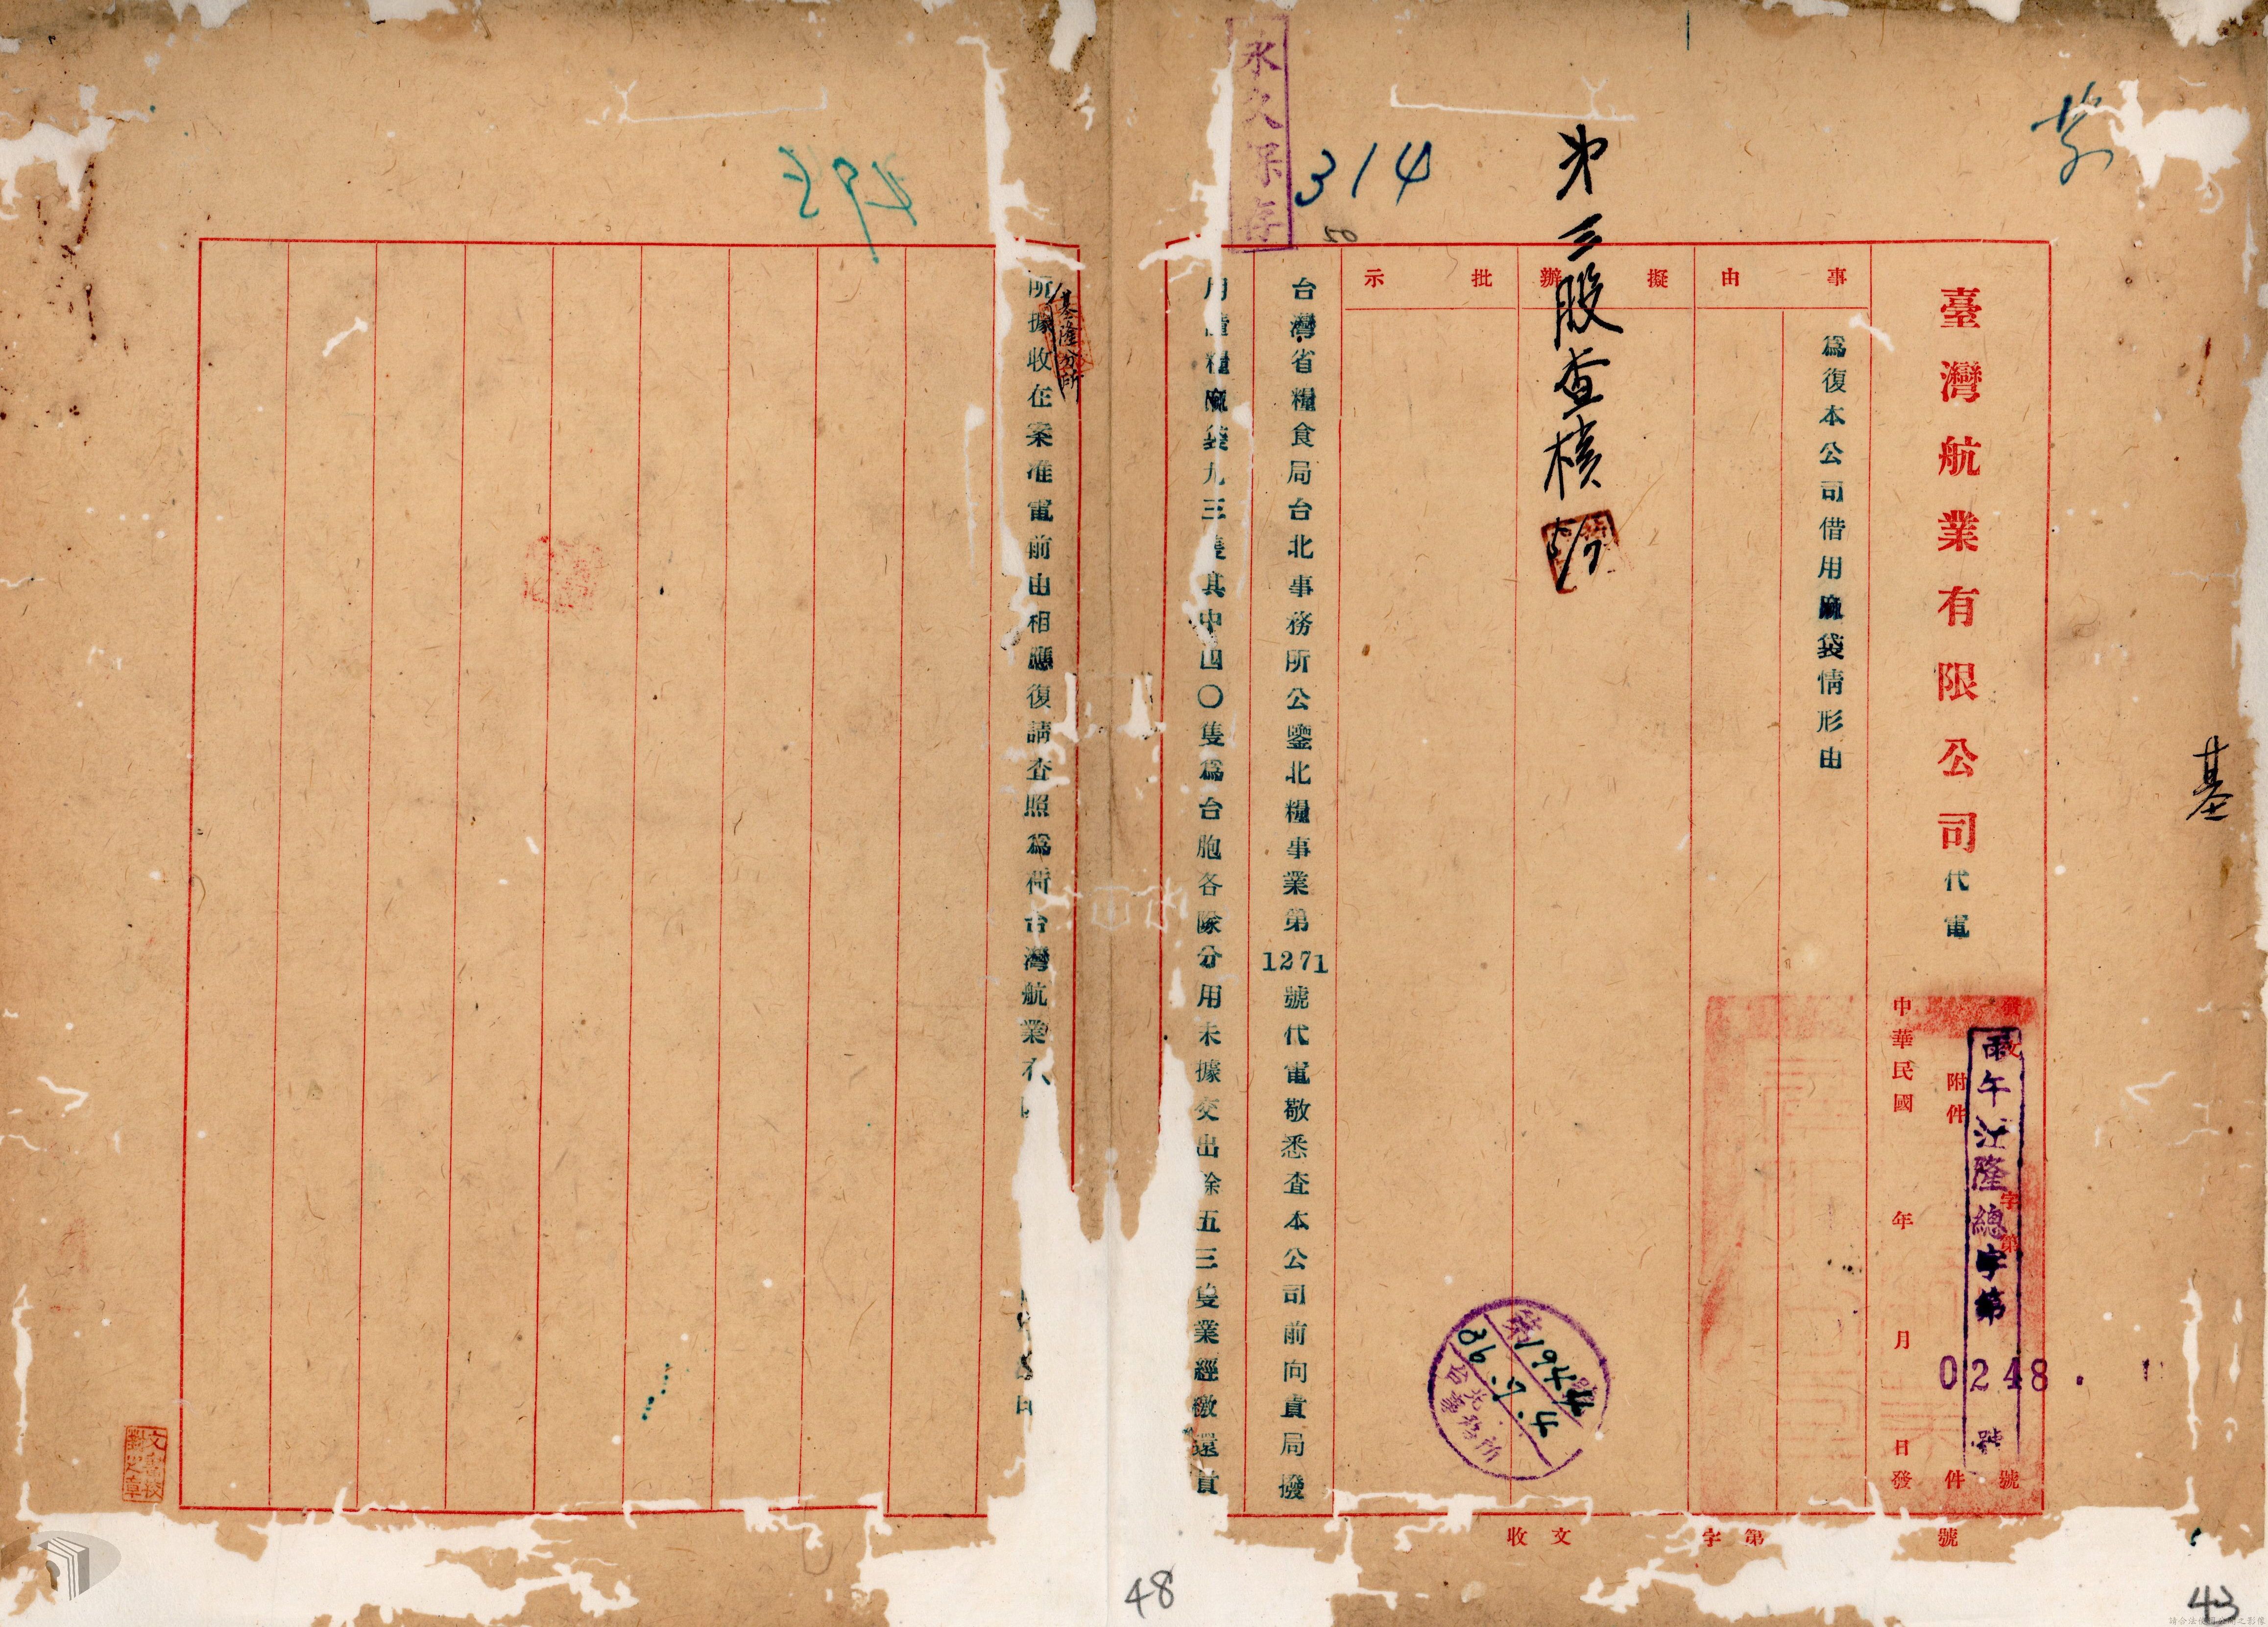 臺灣航業有限公司代電
發文
字第
號
附件
件
中華民國 年 月 日發
午江隆總字第
0248
號
事由
為復本公司借用麻袋情形由
擬辦
批示
第三股查核
台灣省糧食局台北事務所公鑒北糧事業第1271號代電敬悉查本公司前向貴局撥
用 糧麻袋九三隻其中四〇隻為台胞各隊分用未據交出餘五三隻業經繳還貴
所據收在案准電前由相應復請查照為荷台灣航業
基隆分所
永久保存
314
50
號
1944
36.7.4
台北事務所
收文 字第 號
基
48
43